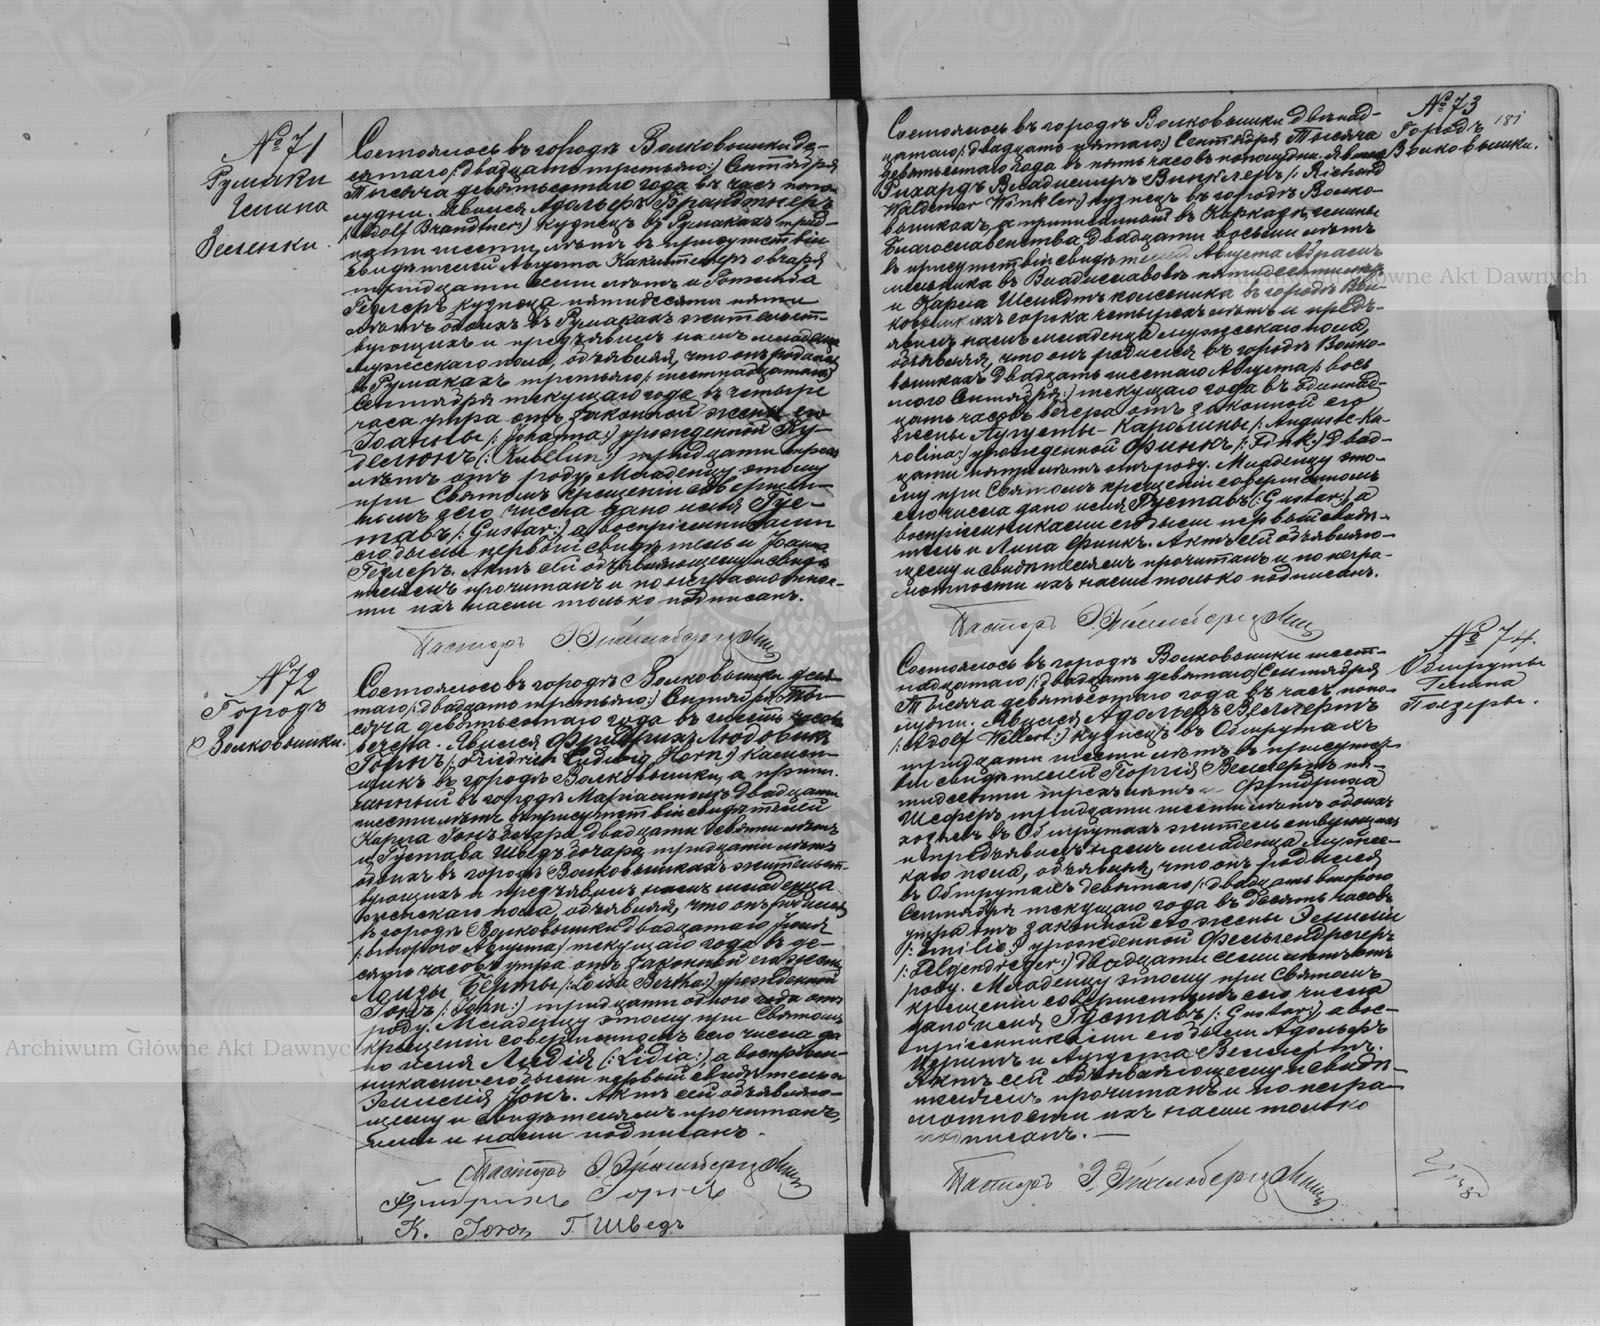 № 71
Румаки
Гмина
Зеленки.
Состоялось въ городѣ Волковышки де-
сятаго /: двадцать третьяго:/ Сентября
Тысяча девятьсотаго года въ часъ попо-
лудни. Явился Адольфъ Брандтнеръ
/: Adolf Brandtner:/ кузнецъ въ Румакахъ трид-
цати шести лѣтъ въ присутствіи
свидѣтелей Августа овчаря
тридцати семи лѣтъ и Готлиба
Гезлеръ кузнеца пятидесяти пяти
лѣтъ обоихъ въ Румакахъ жительст-
вующихъ и предъявилъ намъ младенца
мужескаго пола, объявляя, что онъ родился
въ Румакахъ третьяго /: шестнадцатаго:/
Сентября текущаго года въ четыре
часа утра отъ законной жены его
Іоанны /: Johanna:/ урожденной Ку-
деллюнъ /: Kudellun:/ тридцати трехъ
лѣтъ отъ роду. Младенцу этому
при Святомъ крещеніи совершен-
номъ сего числа дано имя Гус-
тавъ /: Gustav:/, а воспріемниками
его были первый свидѣтель и Іоанна
Гезлеръ. Актъ сей объявляющему и свидѣ-
телямъ прочитанъ и по неграмотнос-
ти ихъ нами только подписанъ.
Пасторъ
№ 72
Городъ
Волковышки.
Состоялось въ городѣ Волковышки деся-
таго /: двадцать третьяго:/ Сентября Ты-
сяча девятьсотаго года въ шесть часовъ
вечера. Явился Фридрихъ Людовикъ
Горнъ /: Friedrich Ludwig Horn:/ камен-
щикъ въ городѣ Волковышки, а припи-
санный въ городѣ Маріамполѣ двадцати
шести лѣтъ въ присутствіи свидѣтелей
Карла Іонъ двадцати девяти лѣтъ
и Густава Шведъ бочара тридцати лѣтъ
обоихъ въ городѣ Волковышкахъ жительст-
вующихъ и предъявилъ намъ младенца
женскаго пола, объявляя, что онъ родился
въ городѣ Волковышки двадцатаго Іюля
/: втораго Августа:/ текущаго года въ де-
сять часовъ утра отъ законной его жены
Лоизы Берты /: Loisa Bertha:/ урожденной
Іонъ /: John:/ тридцати одного года отъ
роду. Младенцу этому при Святомъ
крещеніи совершенномъ сего числа да-
но имя Лидія /: Lidia:/, а воспріем-
никами его были первый свидѣтель и
Эмилія Іонъ. Актъ сей объявляю-
щему и свидѣтелямъ прочитанъ,
ими и нами подписанъ.
Пасторъ
Фридрихъ Горнъ
К. Іонъ Г. Шведъ
№ 73
181
Городъ
Волковышки.
Состоялось въ городѣ Волковышки двѣнад-
цатаго /: двадцать пятаго:/ Сентября Тысяча
девятьсотаго года въ пять часовъ пополудни. Явился
Рихардъ Владимиръ Винклеръ /: Richard
Waldemar Winkler:/ кузнецъ въ городѣ Волко-
вышкахъ, а приписанный въ гмины
Благославенства двадцати восьми лѣтъ
въ присутствіи свидѣтелей Августа Абрамъ
мельника въ Владиславовѣ пятидесяти лѣтъ
и Карла Шмидтъ колесника въ городѣ Вол-
ковышкахъ сорока четырехъ лѣтъ и предъ-
явилъ намъ младенца мужескаго пола,
объявляя, что онъ родился въ городѣ Волко-
вышкахъ двадцать шестаго Августа /: вось-
маго Сентября:/ текущаго года въ одиннад-
цать часовъ вечера отъ законной его
жены Аугусты-Каролины /: Auguste-Ka-
rolina:/ урожденной Финкъ /: Fink:/ двад-
цати пяти лѣтъ отъ роду. Младенцу это-
му при Святомъ крещеніи совершенномъ
сего числа дано имя Густавъ /: Gustav:/, а
воспріемниками его были первый свидѣ-
тель и Лина Финкъ. Актъ сей объявляю-
щему и свидѣтелямъ прочитанъ и по негра-
мотности ихъ нами только подписанъ.
Пасторъ
№ 74.
Обшруты
Гмина
Поезеры.
Состоялось въ городѣ Волковышки шест-
надцатаго /: двадцать девятаго:/ Сентября
Тысяча девятьсотаго года въ часъ попо-
лудни. Явился Адольфъ Веллертъ
/: Adolf Wellert:/ кузнецъ въ Обшрутахъ
тридцати шести лѣтъ въ присутст-
віи свидѣтелей Георгія Веллертъ пя-
тидесяти трехъ лѣтъ и Фридриха
Шеферъ тридцати шести лѣтъ обоихъ
хозяевъ въ Обшрутахъ жительствующихъ
и предъявилъ намъ младенца мужес-
каго пола, объявляя, что онъ родился
въ Обшрутахъ девятаго /: двадцать втораго:/
Сентября текущаго года въ десять часовъ
утра отъ законной его жены Эмиліи
/: Emilie:/ урожденной Фельгендрегеръ
/: Felgendreger:/ двадцати семи лѣтъ отъ
роду. Младенцу этому при Святомъ
крещеніи совершенномъ сего числа
дано имя Густавъ /: Gustav:/, а вос-
пріемниками его были Адольфъ
и Августа Веллертъ.
Актъ сей объявляющему и свидѣ-
телямъ прочитанъ и по негра-
мотности ихъ нами только
подписанъ. —
Пасторъ
Archiwum Główne Akt Dawnych
Archiwum Główne Akt Dawnych